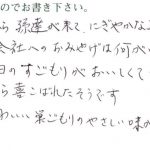 のでお書き下さい。
ら孫達が来て、にぎやかな
会社へのおみやげは何が
日のすごもりがおいしくて
ら喜こばれたそうです
わいい巣ごもりのやさしい味の